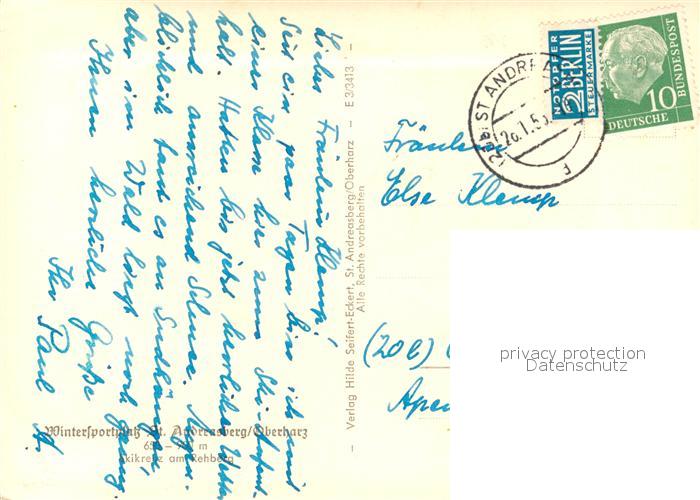 Liebes Fräulein Klemp!
Seit ein paar Tagen bin ich mit
einer Klasse hier zum Ski-Aufent-
halt. Hatten bis jetzt herrliches Wetter
und ausreichend Schnee. Augen-
blicklich taut es an Südhängen,
aber im Wald liegt noch genug.
Ihnen herzliche Grüße
Ihr Paul
Wintersportplatz St. Andreasberg/Oberharz
m
Skikreuz am Rehberg
Verlag Hilde Seifert-Eckert, St. Andreasberg/Oberharz — E 3/3413
Alle Rechte vorbehalten
NOTOPFER
2 BERLIN
STEUERMARKE
DEUTSCHE
BUNDESPOST
10
ST ANDREA
26.1.5
F
Fräulein
Else Klemp
(20b)
privacy protection
Datenschutz